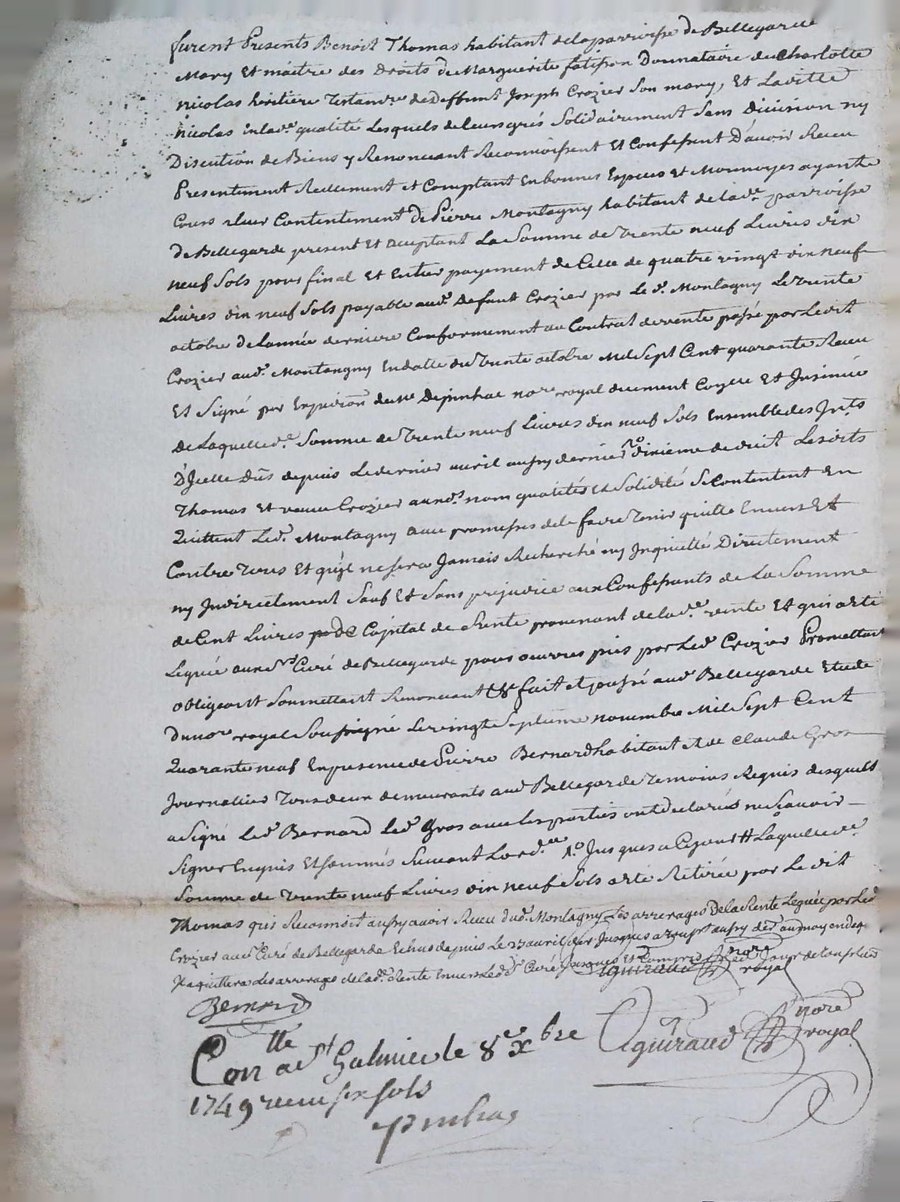 furent Presents Benoit Thomas habitant de la parroisse de Bellegarde
Mary Et maitre des Droits de Marguerite fatison Donnataire de Charlotte
nicolas heritiere Testamre. de Deffunt Joseph Crozier Son mary, Et Laditte
Nicolas en lade. qualité Lesquels de leurs grés Solidairement Sans Division ny
Discution de Biens y Renonceant Reconnoissent Et Confessent D'avoir Receu
Presentement Reellement et Comptant En bonnes Especes Et Monnoyes ayants
Cours a leur Contentement de Pierre Montagny habitant de lade. parroisse
de Bellegarde present Et acceptant La Somme de Trente neuf Livres dix
neuf Sols pour final Et Entier payement de Celle de quatre vingt dix neuf
Livres dix neuf Sols payable aud. defunt Crozier par Led. Montagny Le Trente
octobre de l'année derniere Conformement au Contrat de vente passé par Ledit
Crozier aud. Montagny En datte du Trente octobre Mil Sept Cent quarante Receu
Et Signé par Expedition de Me. Depinhac nore. royal duement Conlle Et Insinué
de Laquelle de. Somme de Trente neuf Livres dix neuf Sols Ensemble des Jnts.
D'Jcelle Dûs depuis Le dernier avril aussy dernier Lesdits
Thomas Et veuve Crozier auxds. nom qualités Et Solidité Se Contentent En
Quittent Led. Montagny avec promesses de le faire Tenir quitte Envers Et
Contre Tous Et qu'jl ne sera Jamais Recherché ny Jnquietté Directement
ny Jndirectement Sauf Et Sans prejudice aux Confessants de La Somme
de Cent Livres pour Capital de Rente provenant de lade. vente Et qui a eté
Leguée aux Srs Curé de Bellegarde pour œuvres pies par Led. Crozier Promettant
obligeant Soummettant Renonceant &c fait et passé aud. Bellegarde Etude
Du nore. royal Soussigné Le vingt Septieme novembre Mil Sept Cent
Quarante neuf En presence de Pierre Bernard habitant Et de Claude Gros
Journallier Tous deux demeurants aud. Bellegarde Temoins Requis desquels
a Signé Led. Bernard Led. Gros avec les parties ont declarés ne Sçavoir
Signer Enquis Et Sommés Suivant L'ordce. 1o. Jusques a Ce jour # Laquelle de.
Somme de Trente neuf Livres dix neuf Sols a eté Retirée par Le dit
Thomas qui Reconnoit aussy avoir Receu dud. Montagny Les arrerages De la Rente Leguée par Led.
Crozier aud. Curé de Bellegarde Echus depuis Le 23 avril
Jl acquittera Les arrerages de lade. Rente Envers Led. Sr. Curé
Aguiraud nore royal
Bernard
Aguiraud nore royal
Conlle a St Galmier le 8e xbre
1749 receu six sols
Pinhac